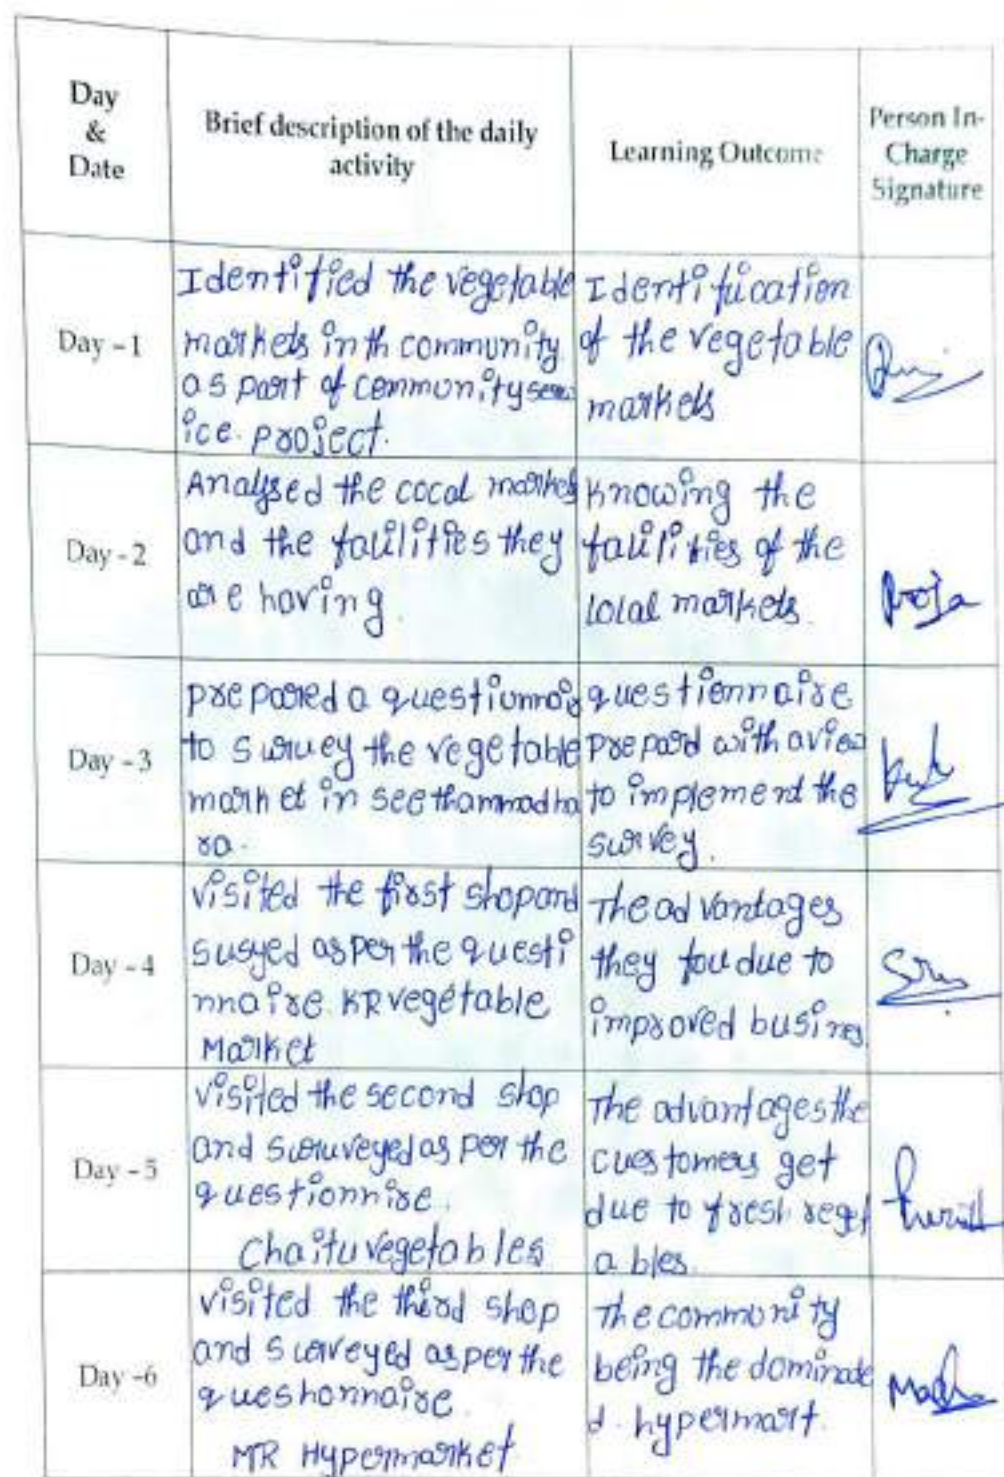 Day
&
Date
Brief description of the daily
activity
Learning Outcome
Person In-
Charge
Signature
Day - 1
Identified the vegetable
markets in th community
as part of community serv
ice. project.
Identification
of the vegetable
markets
Day - 2
Analysed the cocal markets
and the facilities they
are having.
Knowing the
facilities of the
local markets.
Pooja
Day - 3
prepared a questionnair
to survey the vegetable
market in seethammadha
ra.
questionnaire
prepard with a view
to implement the
survey.
Day - 4
visited the first shop and
as per the questi
nnaire. KR vegetable
Market
The advantages
they due to
improved busines
Day - 5
visited the second shop
and suruveyed as per the
questionnire.
Chaitu vegetables
The advantages the
cuestomers get
due to fresh veget
ables.
Day -6
visited the third shop
and surveyed as per the
queshonnaire.
MR Hypermarket
The community
being the dominate
d. hypermart.